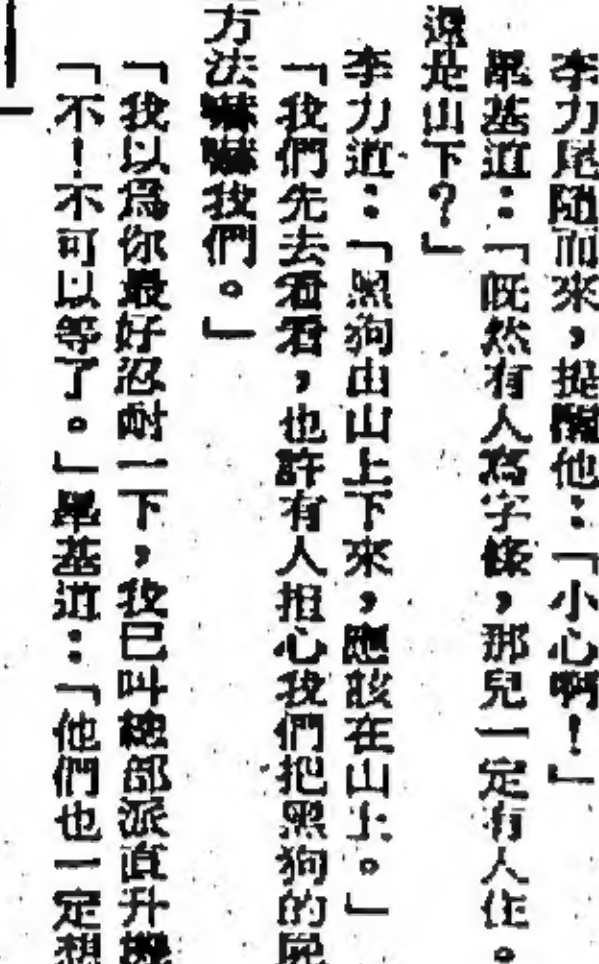 李力尾隨而來，提醒他：「小心啊！」
畢基道：「既然有人寫字條，那兒一定有人住。
還是山下？」
李力道：「黑狗由山上下來，應該在山上。」
「我們先去看看，也許有人担心我們把黑狗的屍
方法嚇嚇我們。」
「我以爲你最好忍耐一下，我已叫總部派直升機
「不！不可以等了。」畢基道：「他們也一定想